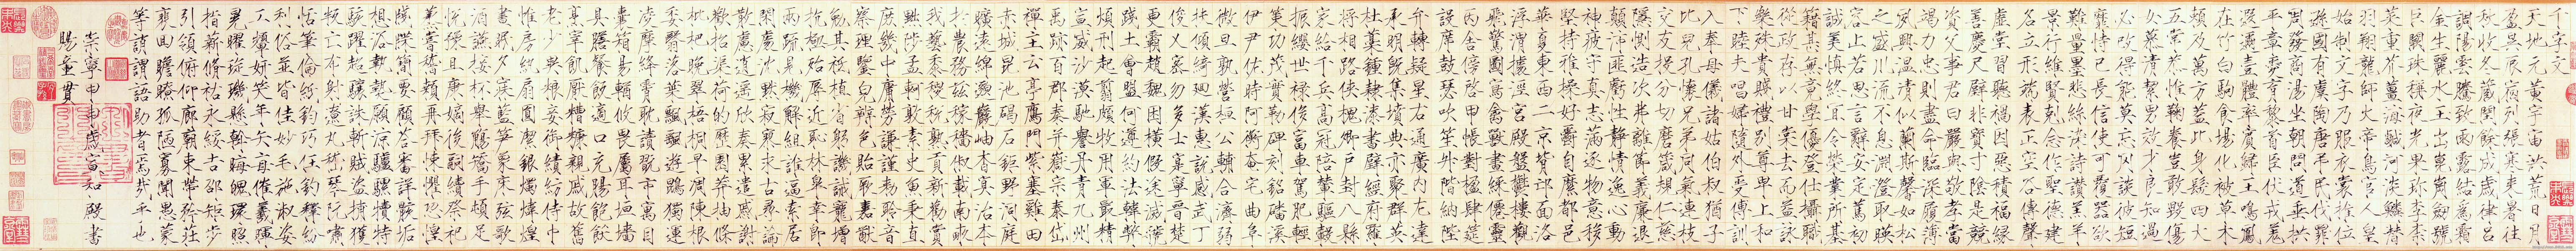 千字文
天地元黄宇宙洪荒日月
盈昃辰宿列張寒来暑往
秋收冬藏閏餘成歲律呂
調陽雲騰致雨露結為霜
金生麗水玉出崐崗劒號
巨闕珠稱夜光果珍李柰
菜重芥薑海鹹河淡鱗潛
羽翔龍師火帝鳥官人皇
始制文字乃服衣裳推位
遜國有虞陶唐弔民伐罪
周發商湯坐朝問道垂拱
平章愛育黎首臣伏戎羌
遐邇壹體率賓歸王鳴鳳
在竹白駒食場化被草木
賴及萬方蓋此身髮四大
五常恭惟鞠養豈敢毀傷
女慕清潔男效才良知過
必改得能莫忘罔談彼短
靡恃己長信使可覆器欲
難量墨悲絲染詩讚羔羊
景行維賢克念作聖德建
名立形端表正空谷傳聲
虛堂習聽禍因惡積福緣
善慶尺璧非寶寸陰是競
資父事君曰嚴與敬孝當
竭力忠則盡命臨深履薄
夙興温凊似蘭斯馨如松
之盛川流不息淵澄取暎
容止若思言辭安定篤初
誠美慎終宜令榮業所基
籍甚無竟學優登仕攝職
從政存以甘棠去而益詠
樂殊貴賤禮別尊卑上和
下睦夫唱婦隨外受傅訓
入奉母儀諸姑伯叔猶子
比兒孔懷兄弟同氣連枝
交友投分切磨箴規仁慈
隱惻造次弗離節義廉退
顛沛匪虧性靜情逸心動
神疲守真志滿逐物意移
堅持雅操好爵自縻都邑
華夏東西二京背邙面洛
浮渭據涇宮殿盤鬱樓觀
飛驚圖寫禽獸畫綵僊靈
丙舍傍啓甲帳對楹肆筵
設席鼓瑟吹笙升階納陛
弁轉疑星右通廣内左達
承明既集墳典亦聚群英
杜藁鍾隸漆書壁經府羅
將相路俠槐卿戶封八縣
家給千兵高冠陪輦驅轂
振纓世祿侈富車駕肥輕
策功茂實勒碑刻銘磻溪
伊尹佐時阿衡奄宅曲阜
微旦孰營桓公輔合濟弱
扶傾綺迴漢惠說感武丁
俊乂密勿多士寔寧晉楚
更霸趙魏困橫假途滅虢
踐土會盟何遵約法韓弊
煩刑起翦頗牧用軍最精
宣威沙漠馳譽丹青九州
禹跡百郡秦并嶽宗泰岱
禪主云亭鴈門紫塞雞田
赤城昆池碣石鉅野洞庭
曠遠綿邈巖岫杳冥治本
於農務茲稼穡俶載南畝
我藝黍稷稅熟貢新勸賞
黜陟孟軻敦素史魚秉直
庶幾中庸勞謙謹勑聆音
察理鑒皃辯色貽厥嘉猷
勉其祗植省躬譏誡寵增
抗極殆辱近恥林皐幸即
兩疏見機解組誰逼索居
閑處沈默寂寥求古尋論
散慮逍遙欣奏累遣慼謝
歡招渠荷的歷園莽抽條
枇杷晚翠梧桐早凋陳根
委翳落葉飄颻遊鵾獨運
凌摩絳霄耽讀翫市寓目
囊箱易輶攸畏屬耳垣墻
具膳餐飯適口充腸飽飫
烹宰飢厭糟糠親戚故舊
老少異粮妾御績紡侍巾
帷房紈扇圓潔銀燭煒煌
晝眠夕寐藍笋象床弦歌
酒讌接杯舉觴矯手頓足
悅豫且康嫡後嗣續祭祀
蒸嘗稽顙再拜悚懼恐惶
牋牒簡要顧答審詳骸垢
想浴執熱願涼驢騾犢特
駭躍超驤誅斬賊盜捕獲
叛亡布射遼丸嵇琴阮嘯
恬筆倫紙鈞巧任釣釋紛
利俗並皆佳妙毛施淑姿
工顰妍笑年矢每催羲暉
晃曜琁璣懸斡晦魄環照
指薪脩祜永綏吉邵矩步
引領俯仰廊廟束帶矜莊
徘徊瞻眺孤陋寡聞愚蒙
等誚謂語助者焉哉乎也
崇寧甲申歲宣和殿書
賜童貫